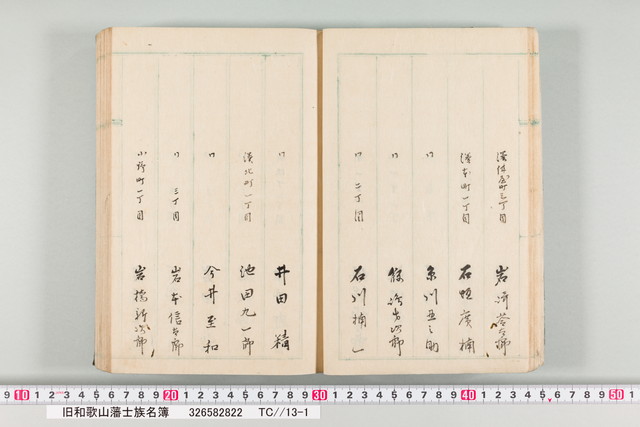 湊本町一丁目
石垣廣楠
〃
糸川五之助
〃
〃 二丁目
石川楠一
〃
井田 精
湊北町一丁目
池田九一郎
〃
今井至和
〃 三丁目
岩本信太郎
小野町一丁目
岩橋新次郎
旧和歌山藩士族名簿 326582822 TC//13-1
9 10 1 2 3 4 5 6 7 8 9 20 1 2 3 4 5 6 7 8 9 30 1 2 3 4 5 6 7 8 9 40 1 2 3 4 5 6 7 8 9 50 1